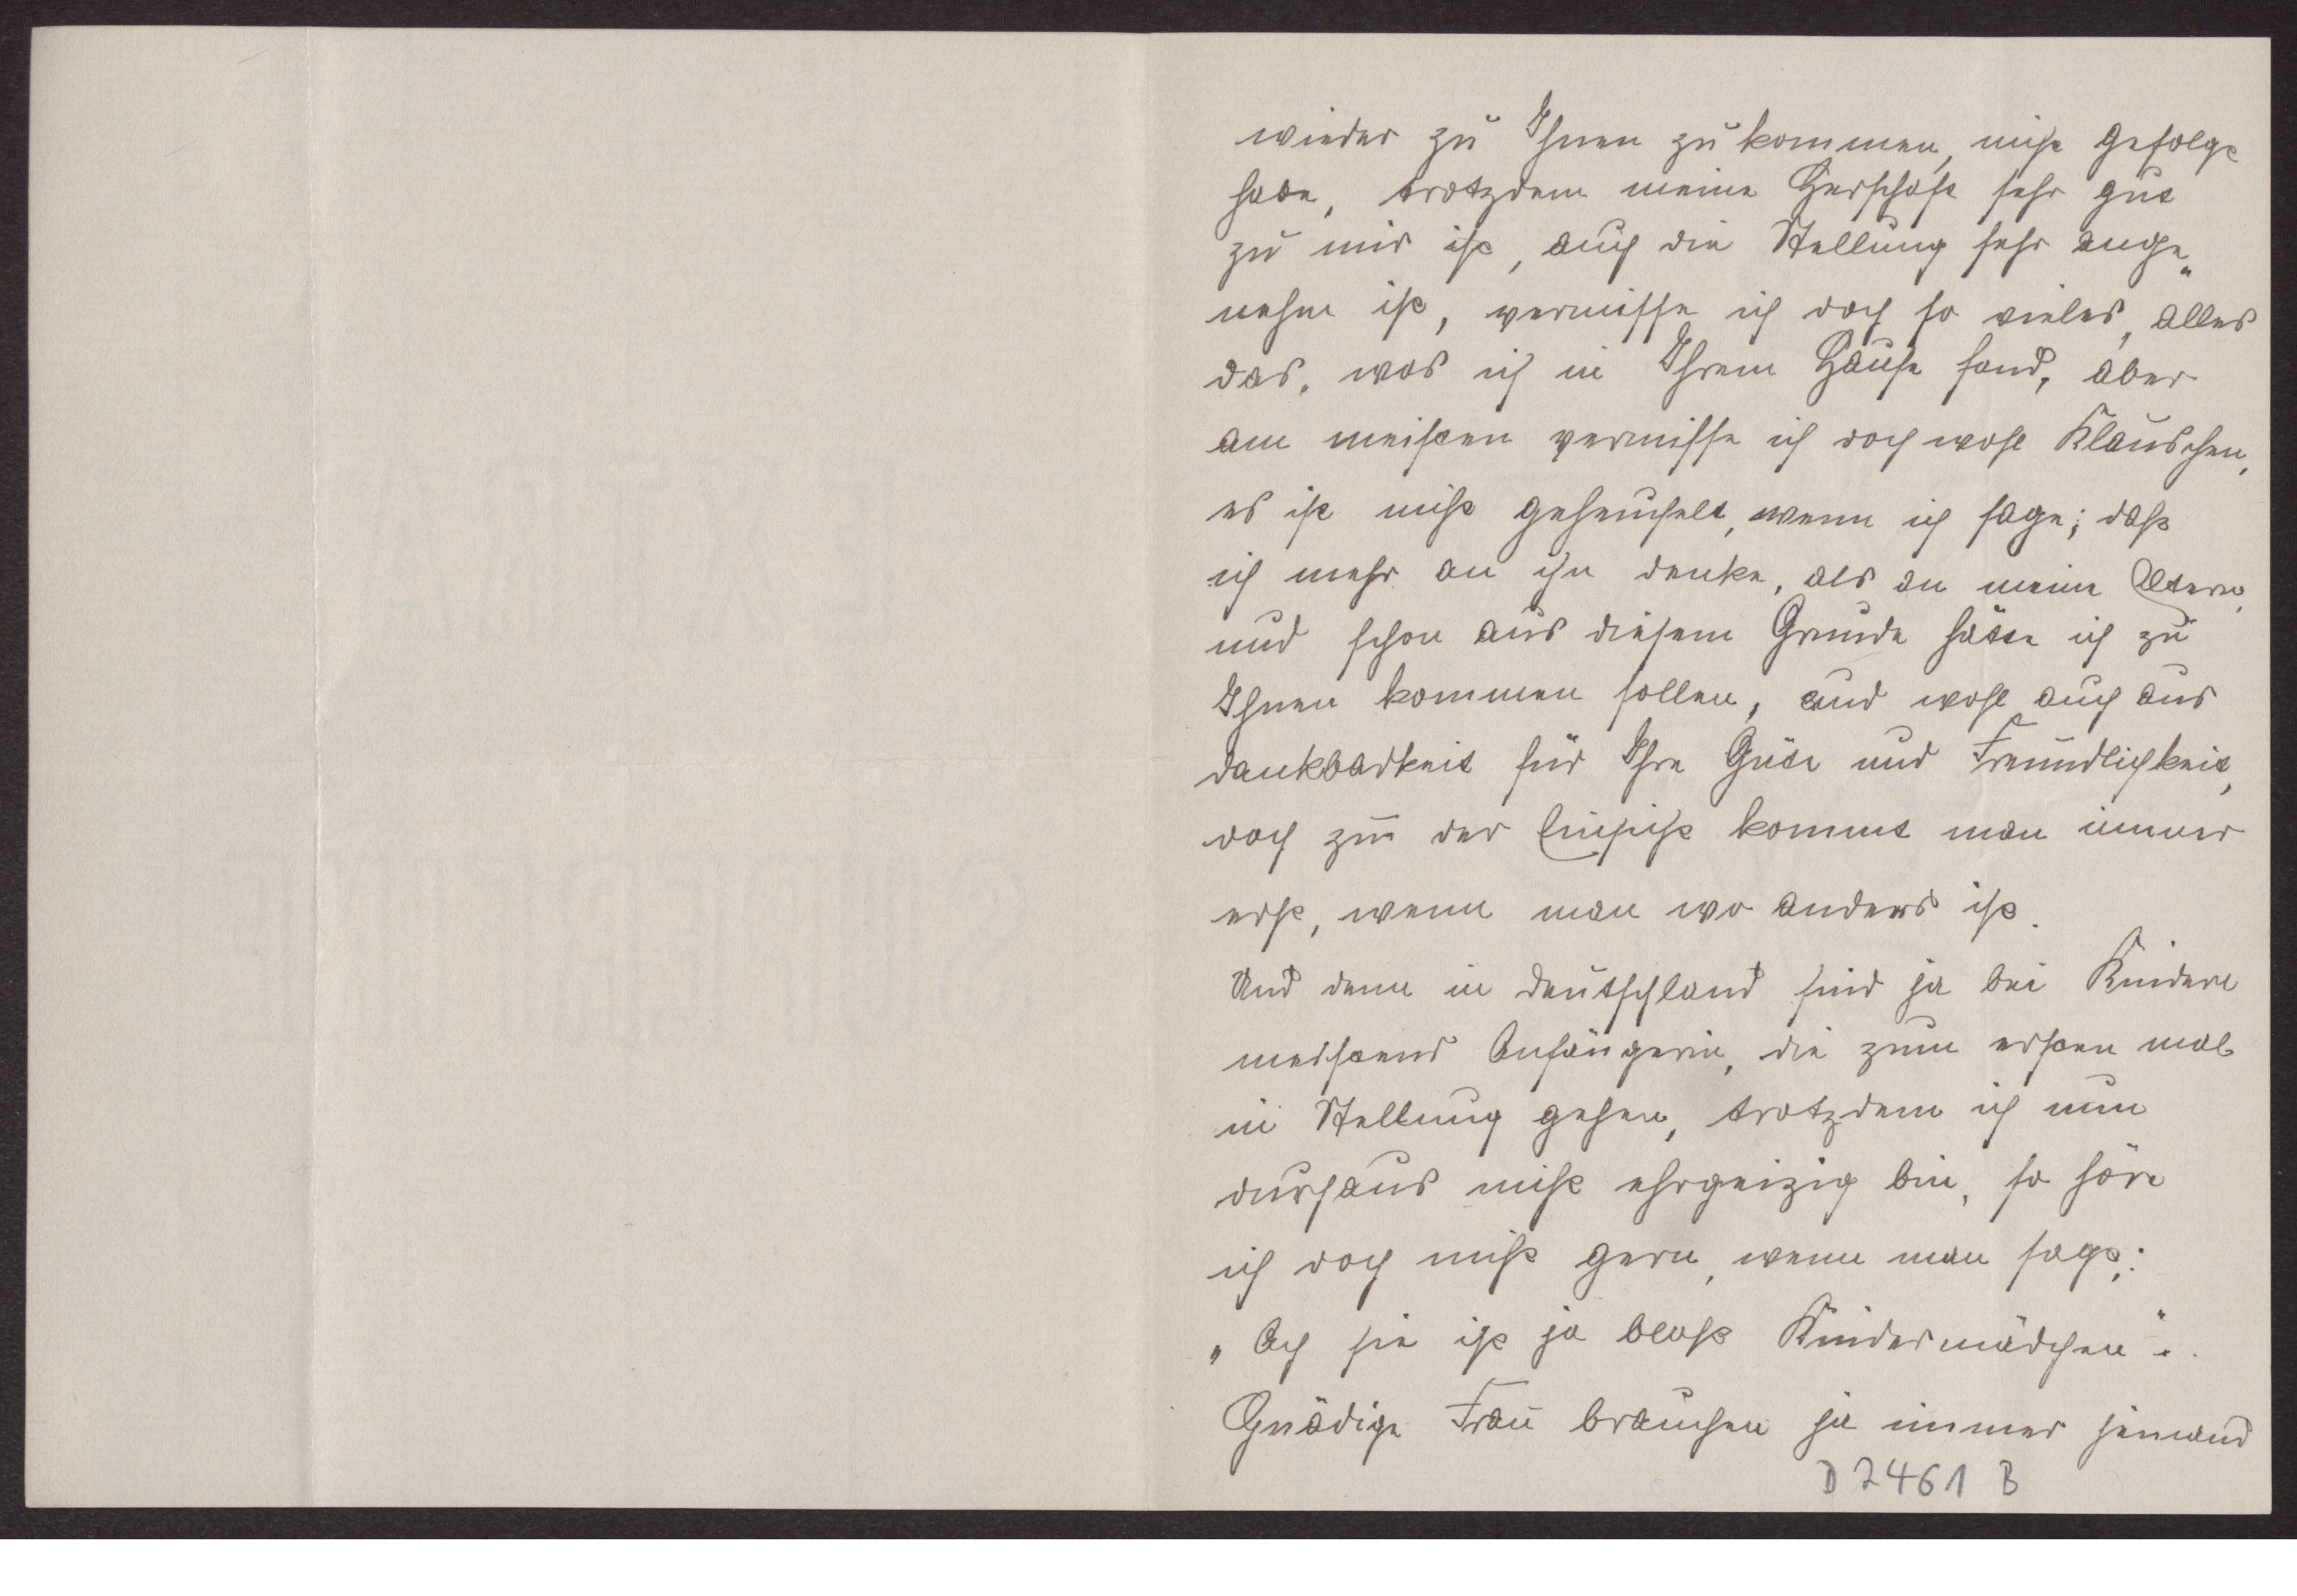 wieder zu Ihnen zu kommen, nicht gefolgt
habe, trotzdem meine Herschaft sehr gut
zu mir ist, auch die Stellung sehr ange„
nehm ist, vermisse ich doch so vieles, alles
das, was ich in Ihrem Hause fand, aber
am meisten vermisse ich doch wohl Kläuschen,
es ist nicht geheuchelt, wenn ich sage; daß
ich mehr an ihn denke, als an meine Eltern,
und schon aus diesem Grunde hätte ich zu
Ihnen kommen sollen, und wohl auch aus
Dankbarkeit für Ihre Güte und Freundlichkeit,
doch zu der Einsicht kommt man immer
erst, wenn man wo anders ist.
Und dann in Deutschland sind ja bei Kindern
meistens Anfängerin, die zum ersten mal
in Stellung gehen, trotzdem ich nun
durchaus nicht ehrgeizig bin, so höre
ich doch nicht gern, wenn man sagt:
„Ach sie ist ja bloß Kindermädchen".
Gnädige Frau brauchen ja immer jemand
D 7461 B